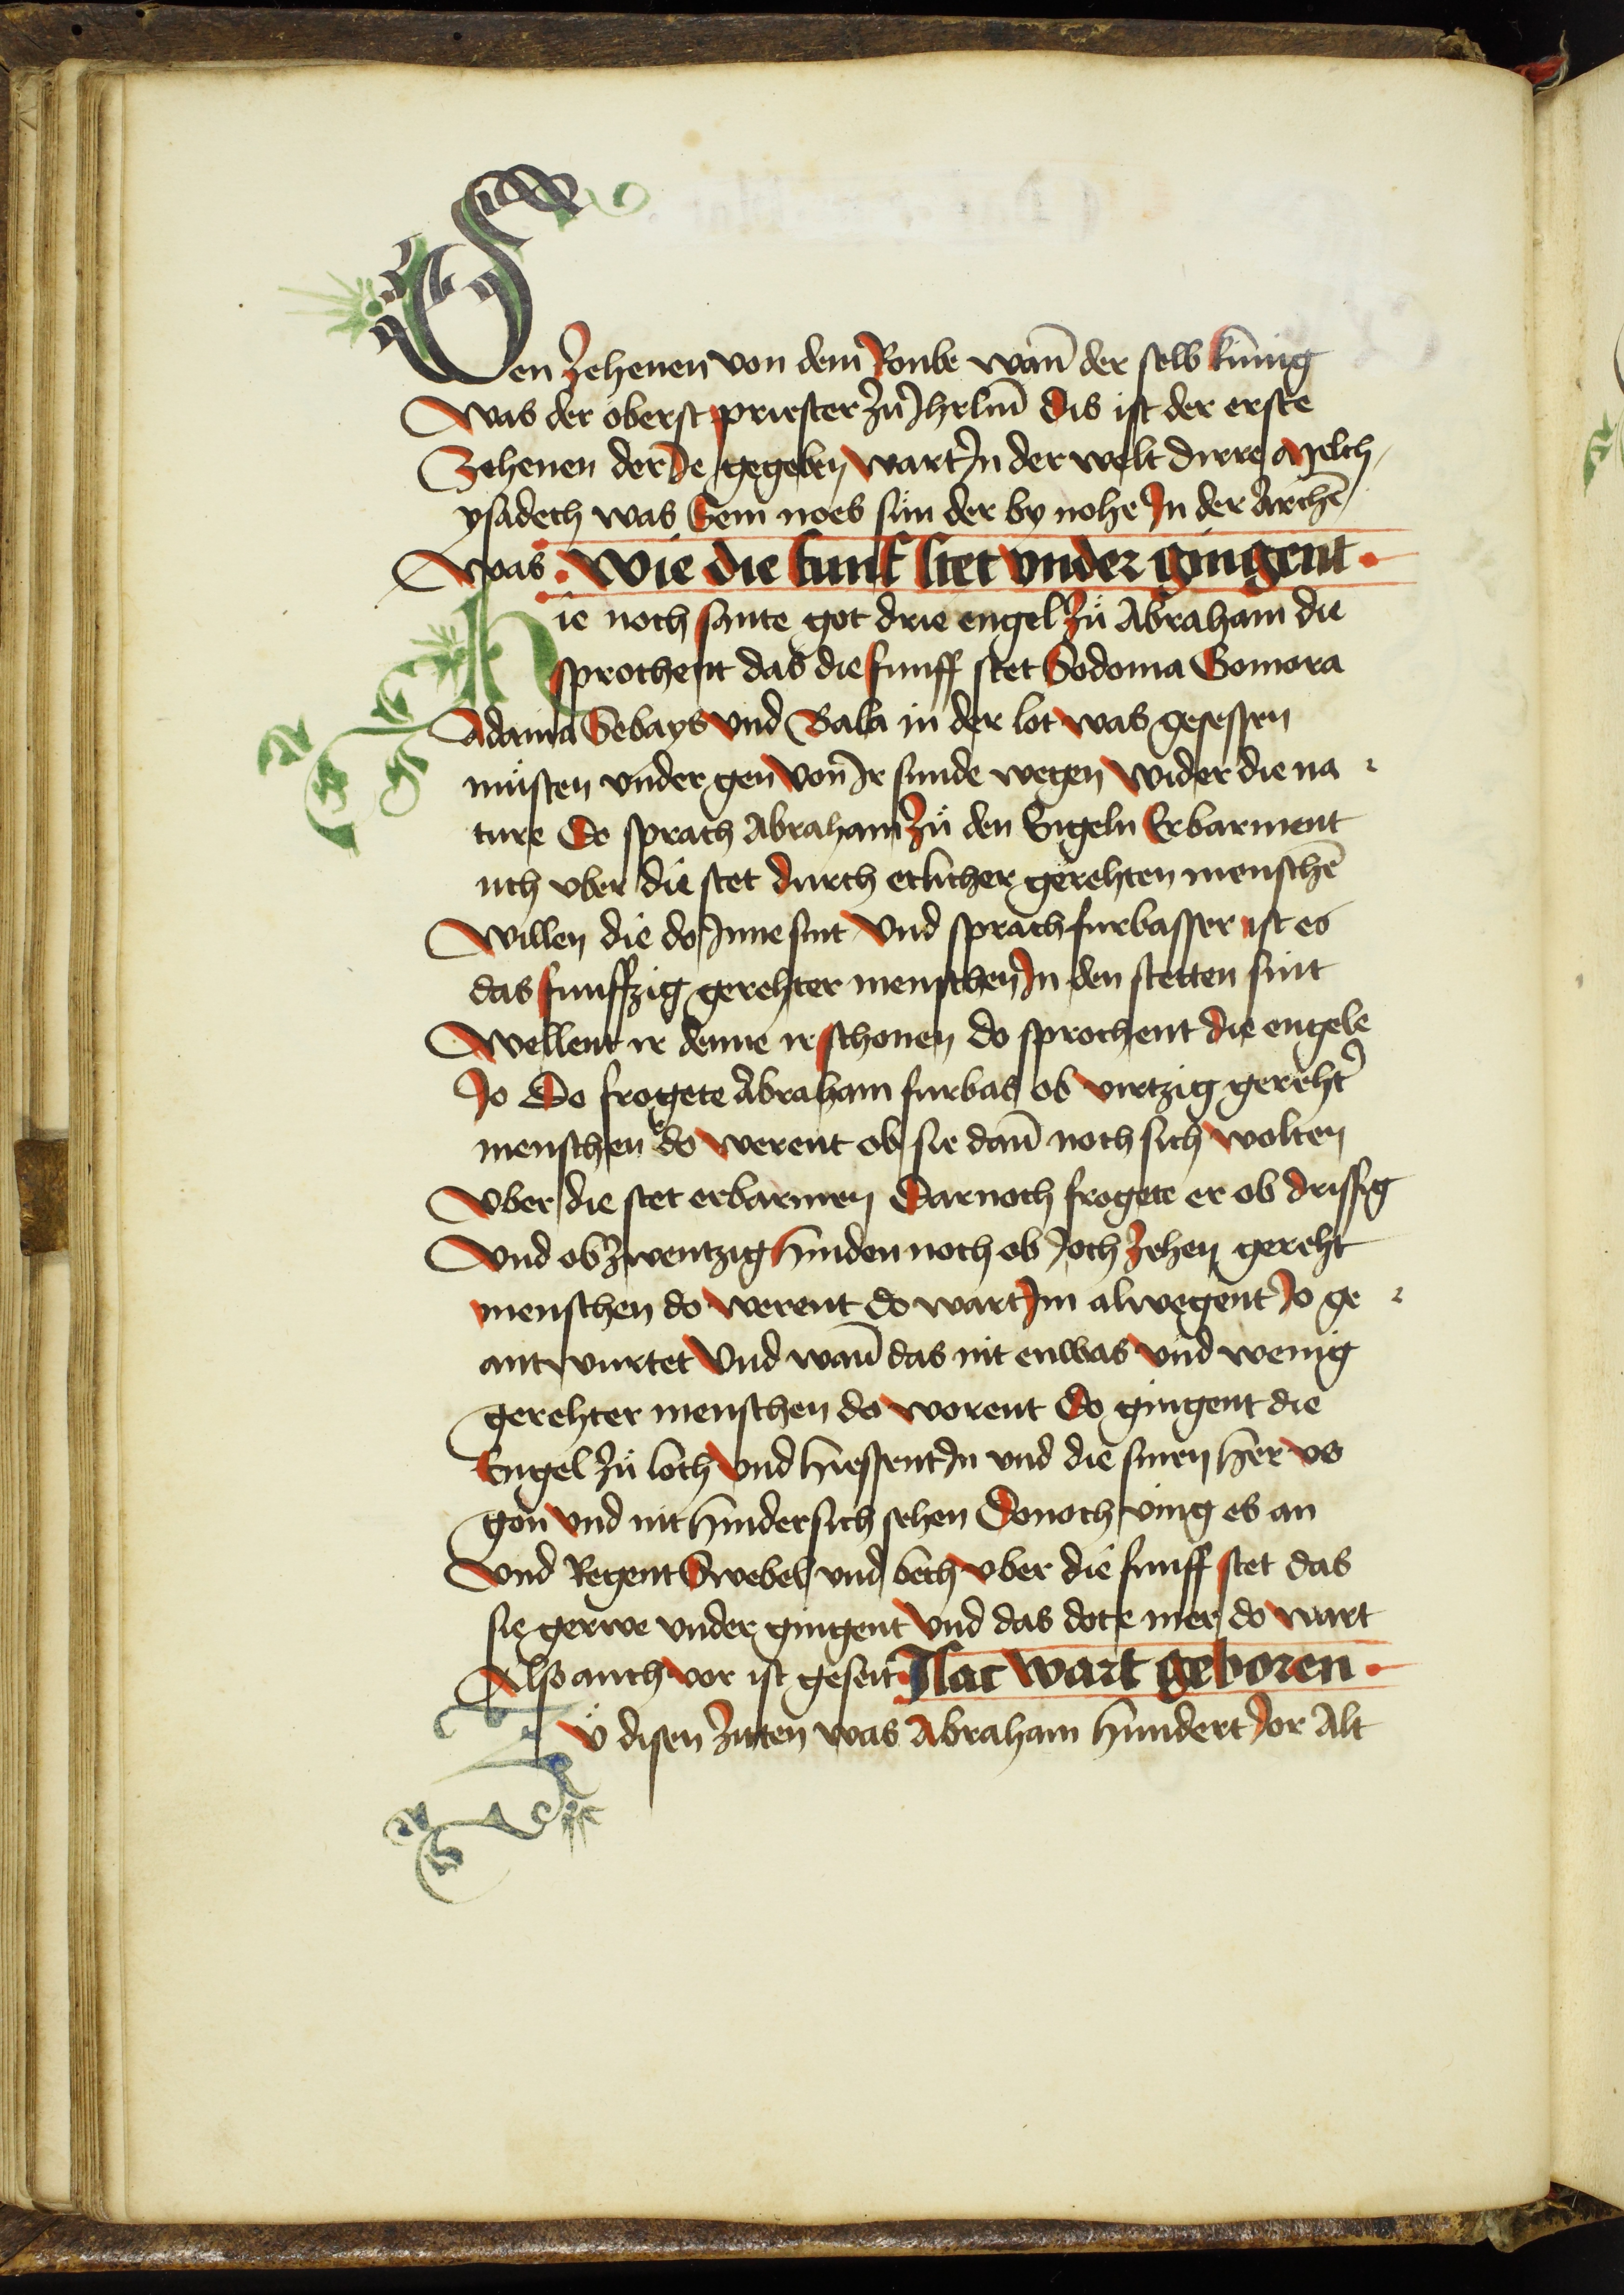 Den Zehenen von dem Roube wan̄ der selb kúnig
Was der oberst priester zů Jhrlm̄ Dis ist der erste
Zehenen der Je gegeben wart Jn der welt dirre Melch
ysadech was Sem noes sun der by nohe Jn der Archē
Was · Wie die funf stet vnder gingent ·
Hie noch sante got drie engel Zů Abraham die
sprochent das die funff stet Sodoma Gomora
Adama Sebays Vnd Bala in der lot was gesessen
můsten vnder gen Von Jr sunde wegen Wider die na
ture Do sprach Abraham Zů den Engeln Erbarment
uch vber die stet durch etlicher gerehten menschē
Willen die do Jnne sint Vnd sprach furbasser ist es
das funffzig gerehter menschen Jn den stetten sint
Wellent ir denne ir schonen do sprochent die engele
Jo Do frogete Abraham furbas ob viertzig gereht̉
menschen do werent ob sie dan̄ noch sich wolten
Vber die stet erbarmen Darnoch frogete er ob drissig
Vnd ob Zwentzig Hinden noch ob Joch Zehen gereht
menschen do Werent do wart Jm alwegent Jo ge
antwurtet Vnd wan̄ das nit enwas Vnd wenig
gerehter menschen do worent Do gingent die
Engel Zů loth Vnd hiessent Jn vnd die sinen her vs
gon Vnd nit hinder sich sehen Donoch ving es an
Vnd Regent Swebel vnd bech Vber die funff stet das
sie gerwe vnder gingent Vnd das dote mer do wart
Also auch vor ist geseit Jsac wart geboren ·
Zů disen Zitten was Abraham hundert Jor Alt